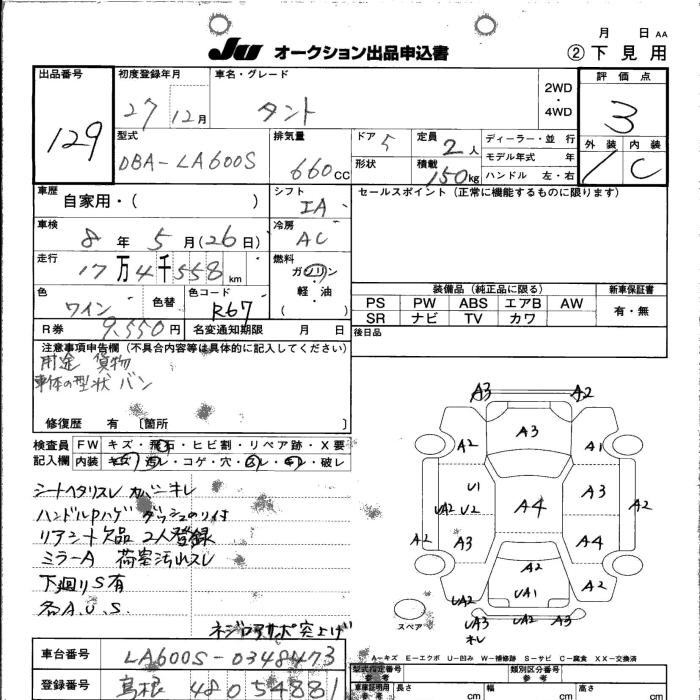 月 日 AA
JU オークション出品申込書 ② 下見用
出品番号 初度登録年月 車名・グレード 2WD・4WD 評価点
129 27 12月 タント 3
型式 排気量 ドア 5 定員 2人 ディーラー・並行 外装 内装
DBA-LA600S 660CC 形状 積載 150kg モデル年式 年 C
ハンドル 左・右
車歴 自家用・( ) シフト IA セールスポイント (正常に機能するものに限ります)
車検 8年 5月(26日) 冷房 AC
走行 17万4千558km 燃料 ガソリン
軽・油
( )
色 ワイン 色替 色コード R67
装備品 (純正品に限る) 新車保証書
PS PW ABS エアB AW 有・無
SR ナビ TV カワ
R券 9,550円 名変通知期限 月 日 後日品
注意事項申告欄 (不具合内容等は具体的に記入してください)
用途 貨物
車体の型状 バン
修復歴 有 〔箇所 〕
検査員 FW キズ・飛石・ヒビ割・リペア跡・X要
記入欄 内装 キズ・汚レ・コゲ・穴・スレ・キレ・破レ
シートヘタリスレ カバーキレ
ハンドルPハゲ ダッシュのり付
リアシート欠品 2人登録
ミラーA 荷室汚レスレ
下廻りS有
各A.U.S.
A3 A2
A3
A2 A1
U1 A3
UA2 U2 A4 A2
A2 A3 A4
A2
A2
UA2 UA1
UA3 UA2 A3
キレ
スペア
A-キズ E-エクボ U-凹み W-補修跡 S-サビ C-腐食 XX-交換済
車台番号 LA600S-0348473
型式指定番号 参考 類別区分番号 参考
登録番号 島根 480 54881
車庫証明用 参考 長さ cm 幅 cm 高さ cm